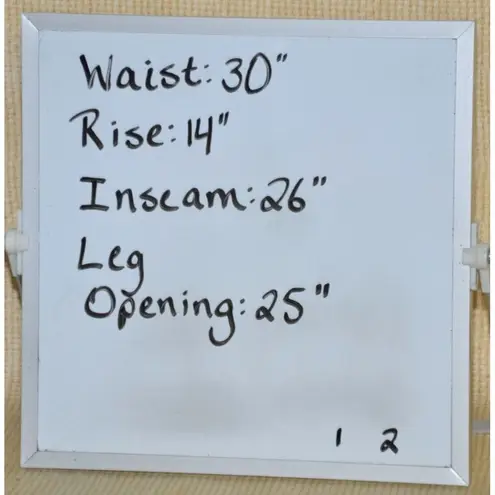 Waist: 30"
Rise: 14"
Inseam: 26"
Leg
Opening: 25"
1 2